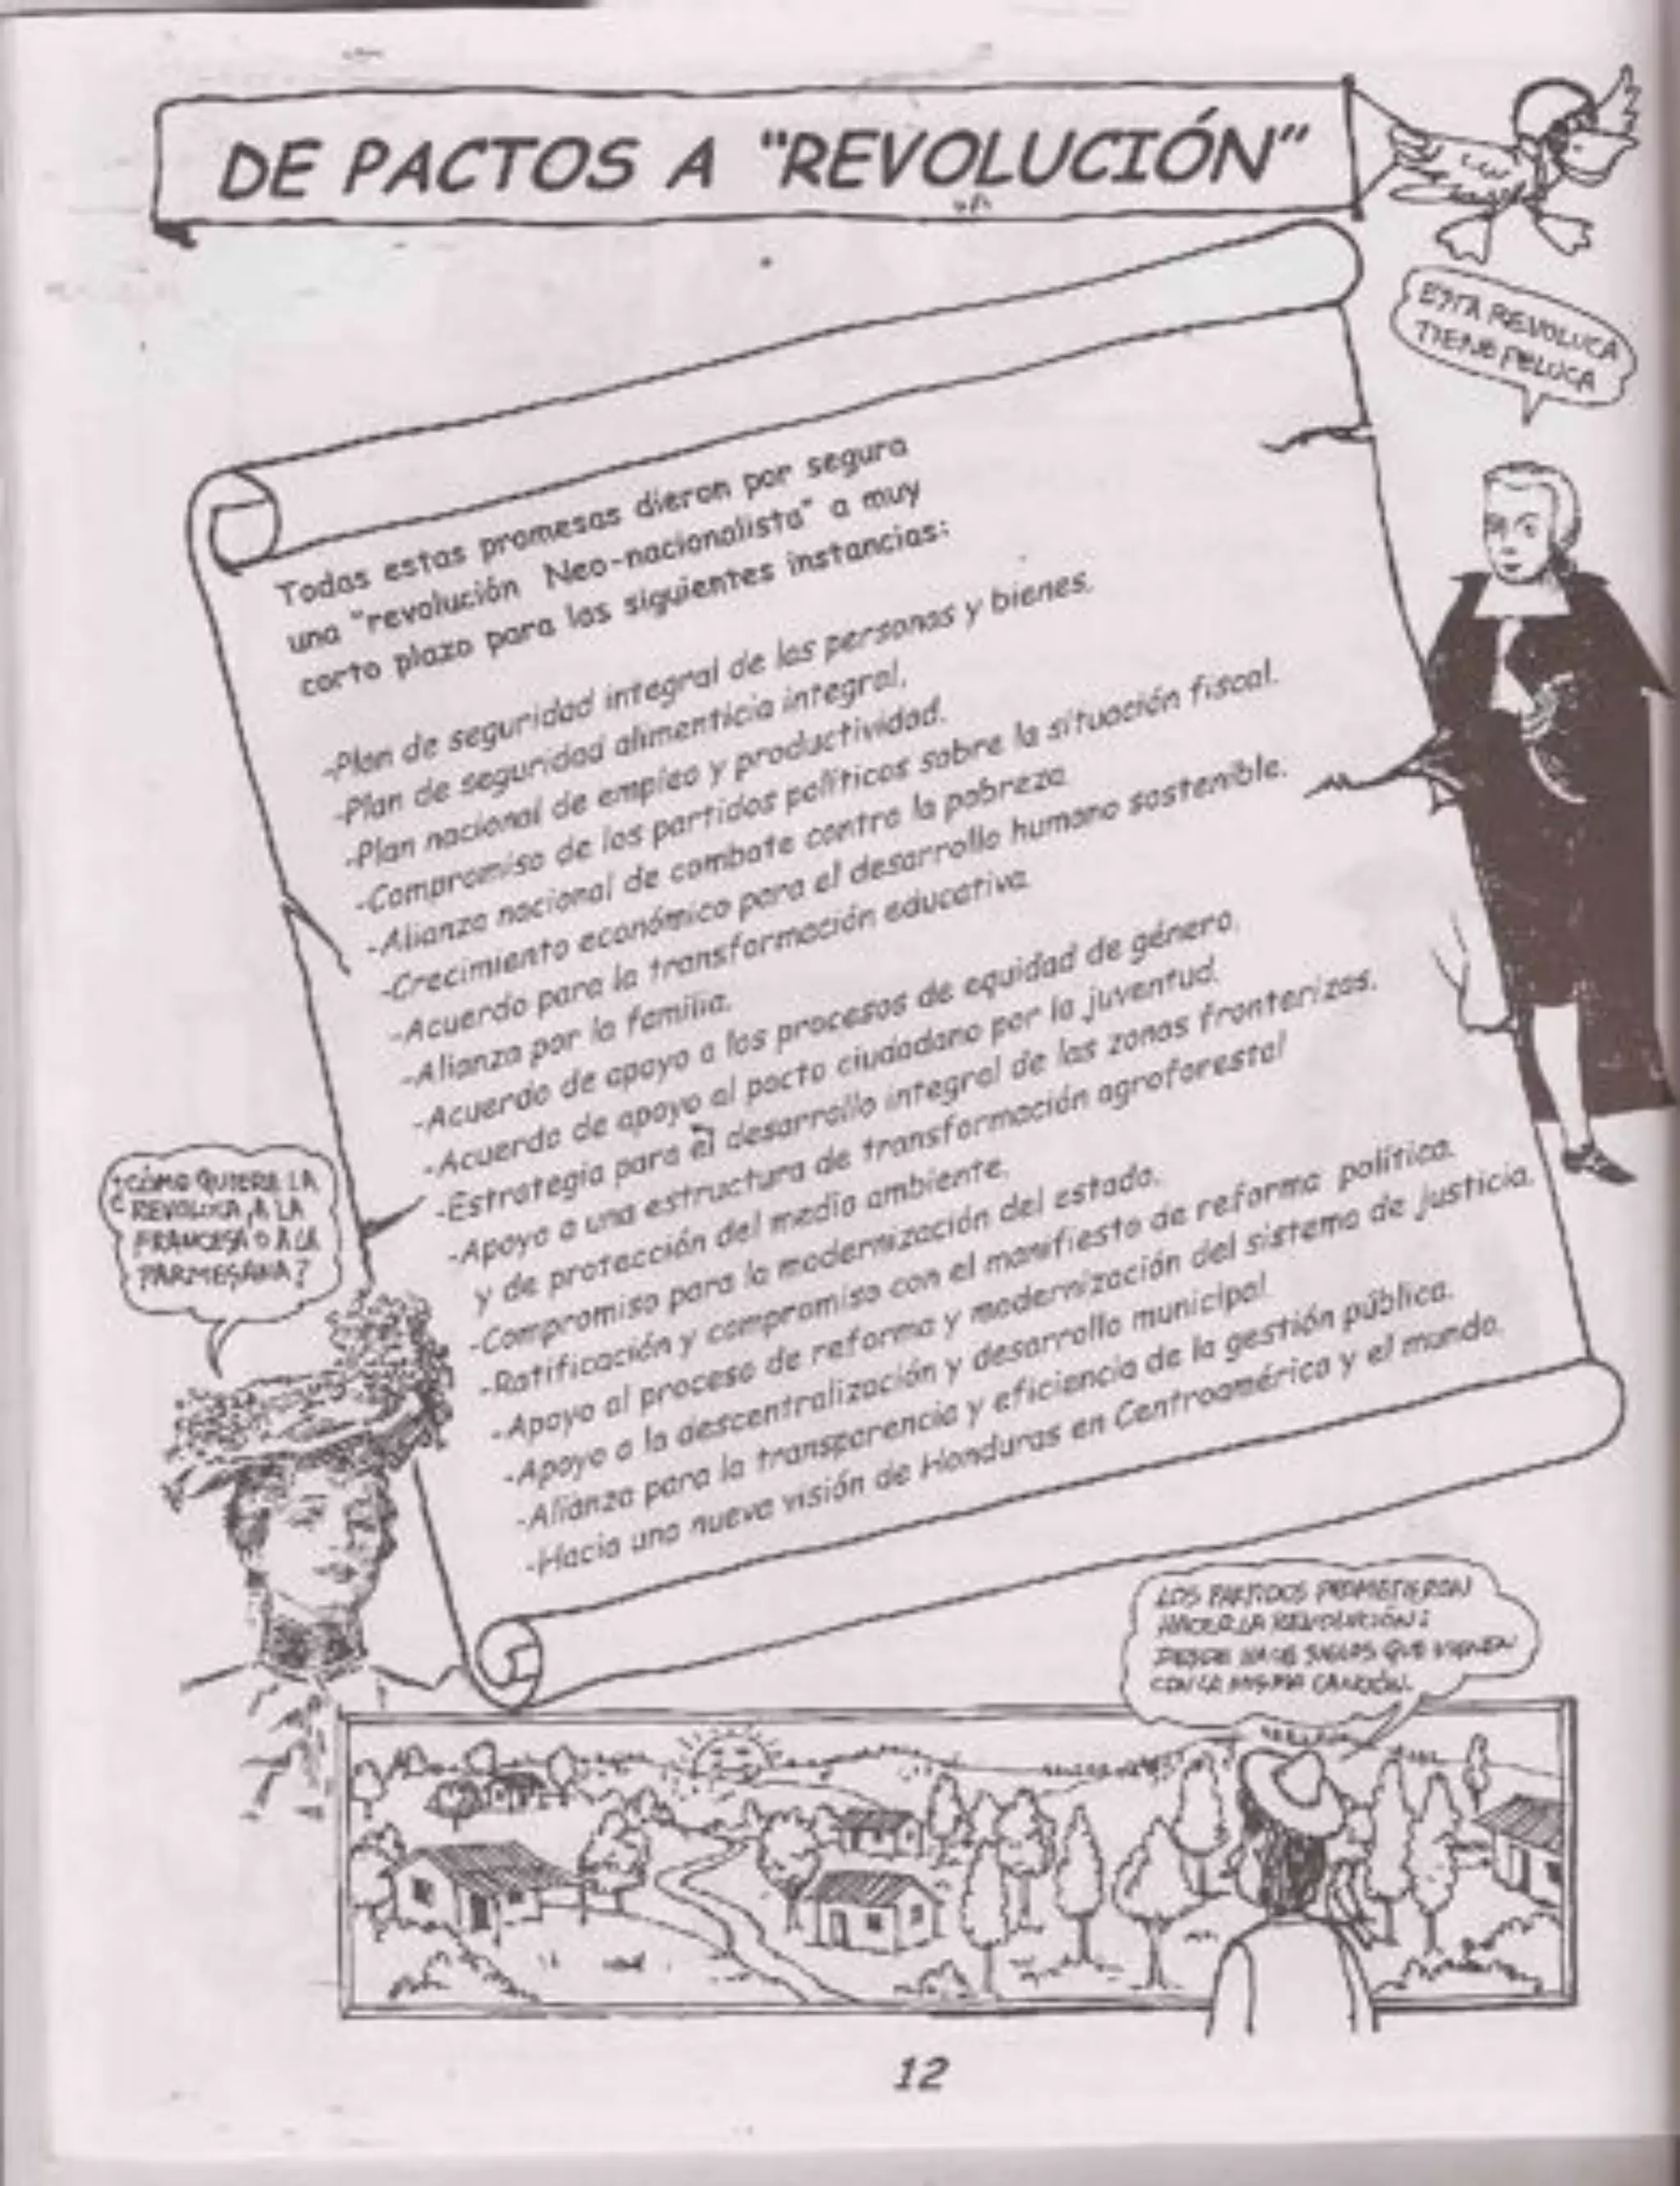 DE PACTOS A “REVOLUCIÓN”
ESTA REVOLUCA
TIENE PELUCA
Todas estas promesas dieron por segura
una “revolución Neo-nacionalista” a muy
corto plazo para las siguientes instancias:
-Plan de seguridad integral de las personas y bienes.
-Plan de seguridad alimenticia integral.
-Plan nacional de empleo y productividad.
-Compromiso de los partidos políticos sobre la situación fiscal.
-Alianza nacional de combate contra la pobreza
-Crecimiento económico para el desarrollo humano sostenible.
-Acuerdo para la transformación educativa
-Alianza por la familia.
-Acuerdo de apoyo a los procesos de equidad de género.
-Acuerdo de apoyo al pacto ciudadano por la juventud.
-Estrategia para el desarrollo integral de las zonas fronterizas.
-Apoyo a una estructura de transformación agroforestal
y de protección del medio ambiente.
-Compromiso para la modernización del estado.
-Ratificación y compromiso con el manifiesto de reforma política.
-Apoyo al proceso de reforma y modernización del sistema de justicia.
-Apoyo a la descentralización y desarrollo municipal
-Alianza para la transparencia y eficiencia de la gestión pública.
-Hacia una nueva visión de Honduras en Centroamérica y el mundo.
¿CÓMO QUIERE LA
REVOLUCA, A LA
FRANCESA O A LA
PARMESANA?
LOS PARTIDOS PROMETIERON
HACER LA REVOLUCIÓN:
DESDE HACE SIGLOS QUE VIENEN
CON LA MISMA CANCIÓN.
12